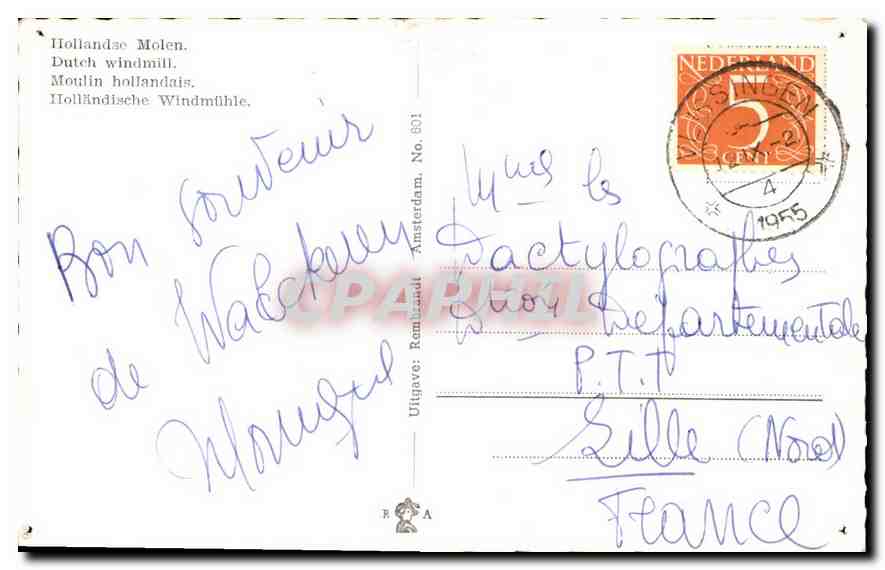 Hollandse Molen.
Dutch windmill.
Moulin hollandais.
Holländische Windmühle.
Bon souvenir
de Walckeren
Uitgave: Rembrandt Amsterdam. No. 601
R A
NEDERLAND
5
CENT
VLISSINGEN
12.IX.-2
4
1955
Mmes les
Dactylographes
Don Départementale
P.T.T
Lille (Nord)
France
CPAPHIL